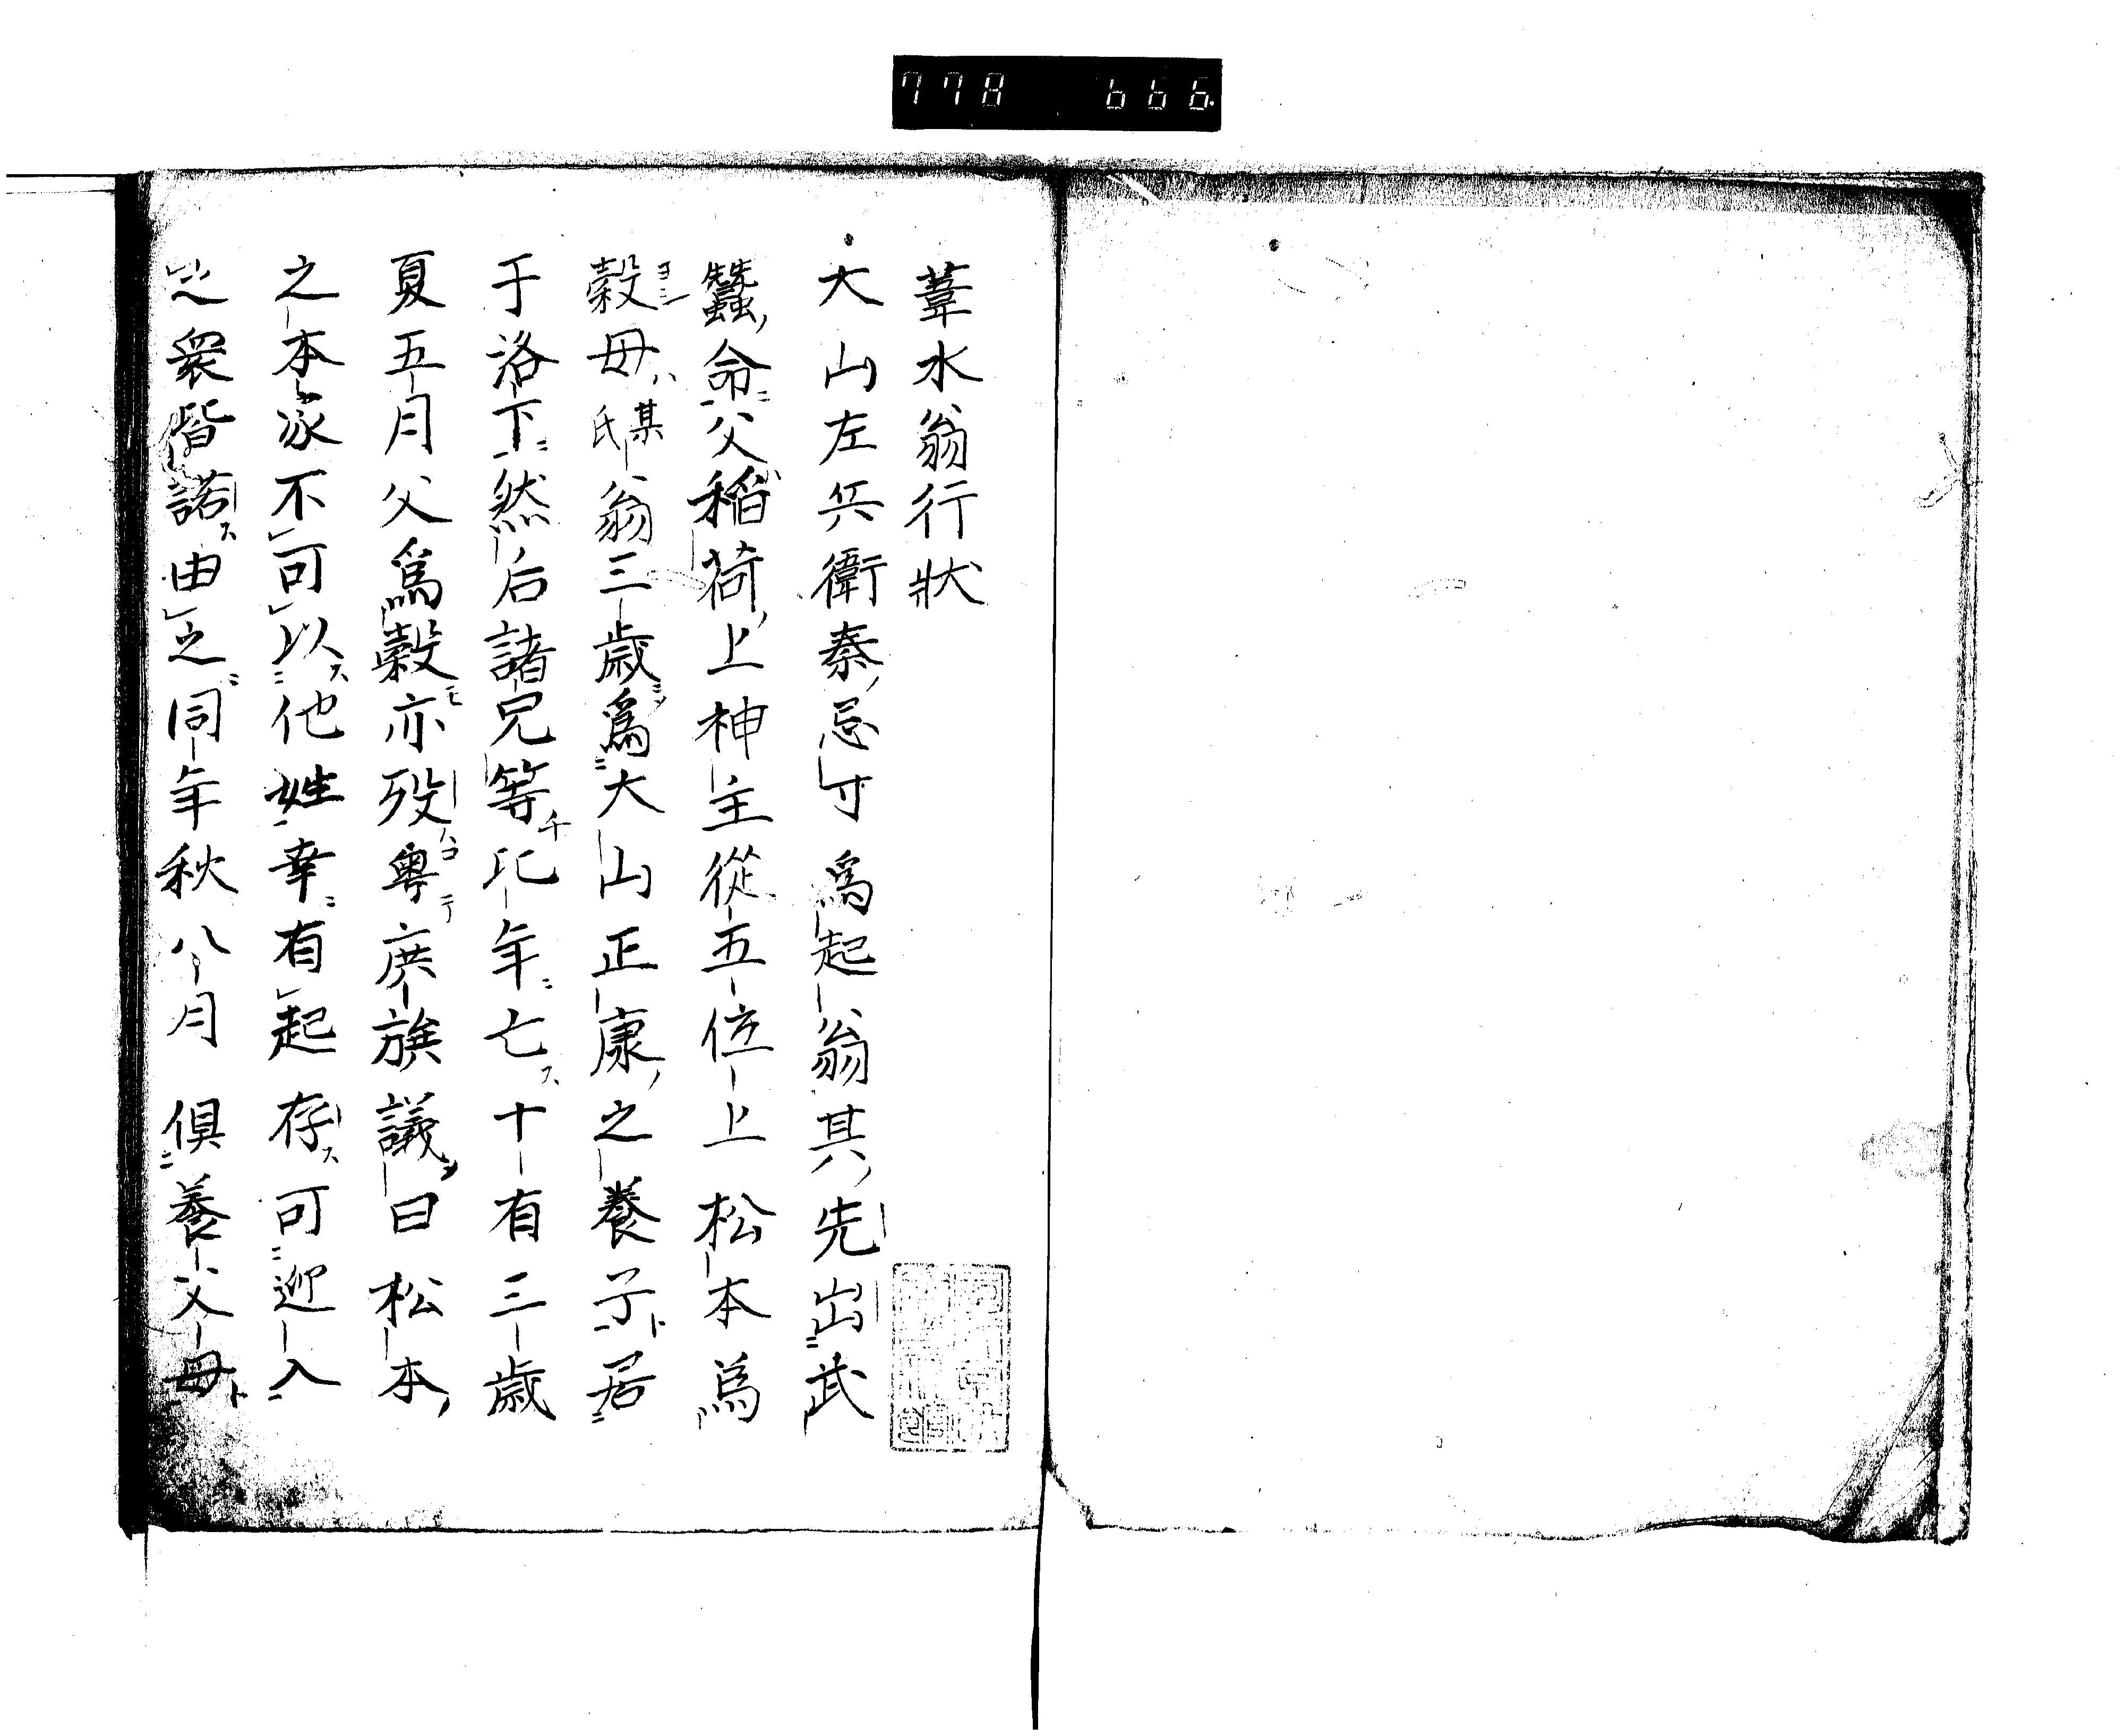 778 666
葦水翁行狀
大山左兵衛秦忌寸爲起翁其先出武
蠶命父稲荷上神主從五位上松本爲
穀母某氏翁三歳爲大山正康之養子居
于洛下然后諸兄等比年亡十有三歳
夏五月父爲穀亦歿粤庶族議曰松本
之本家不可以他姓幸有起存可迎入
之衆皆諾由之同年秋八月俱養父母